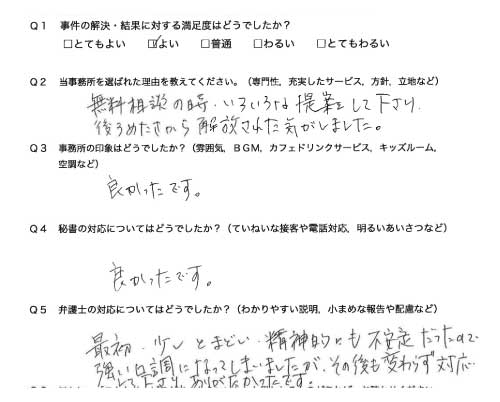 Q1 事件の解決・結果に対する満足度はどうでしたか？
□とてもよい ☑よい □普通 □わるい □とてもわるい
Q2 当事務所を選ばれた理由を教えてください。（専門性，充実したサービス，方針，立地など）
無料相談の時、いろいろな提案をして下さり、
後ろめたさから解放された気がしました。
Q3 事務所の印象はどうでしたか？（雰囲気，BGM，カフェドリンクサービス，キッズルーム，
空調など）
良かったです。
Q4 秘書の対応についてはどうでしたか？（ていねいな接客や電話対応，明るいあいさつなど）
良かったです。
Q5 弁護士の対応についてはどうでしたか？（わかりやすい説明，小まめな報告や配慮など）
最初、少しとまどい、精神的にも不安定だったので
強い口調になってしまいましたが、その後も変わらず対応
下さり、ありがたかったです。